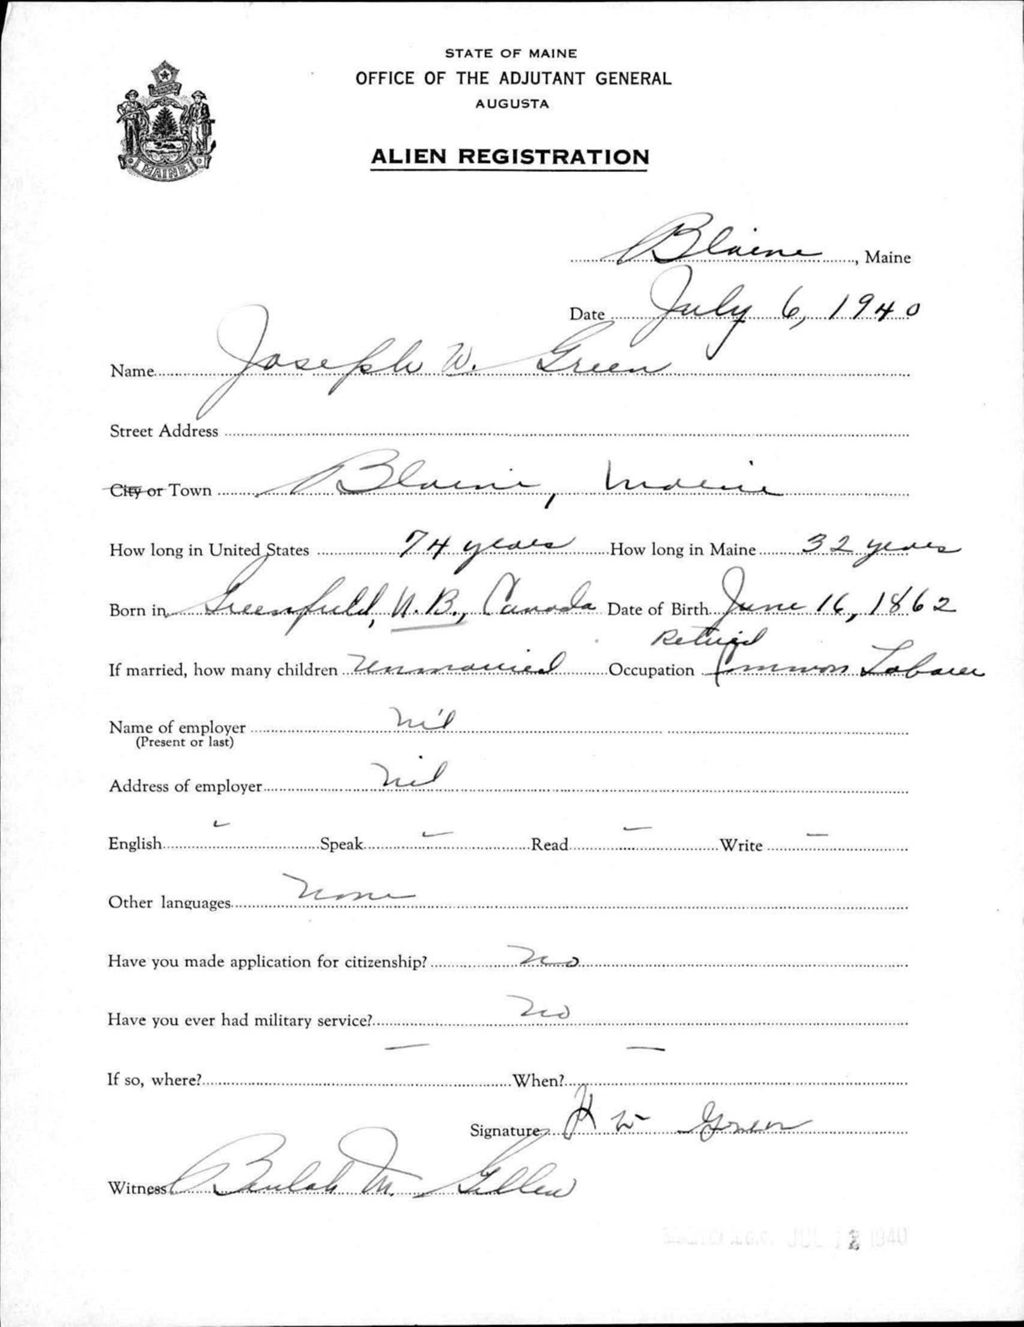 STATE OF MAINE
OFFICE OF THE ADJUTANT GENERAL
AUGUSTA
MAINE
ALIEN REGISTRATION
Blaine, Maine
Date July 6, 1940
Name Joseph W. Green
Street Address
City or Town Blaine, Maine
How long in United States 74 years How long in Maine 32 years
Born in Greenfield, N.B., Canada Date of Birth June 16, 1862
Retired
If married, how many children Unmarried Occupation Common Laborer
Name of employer nil
(Present or last)
Address of employer nil
English - Speak - Read - Write -
Other languages none
Have you made application for citizenship? no
Have you ever had military service? no
If so, where? - When? -
Signature W Green
Witness Beulah M. Gillen
JUL 12 1940